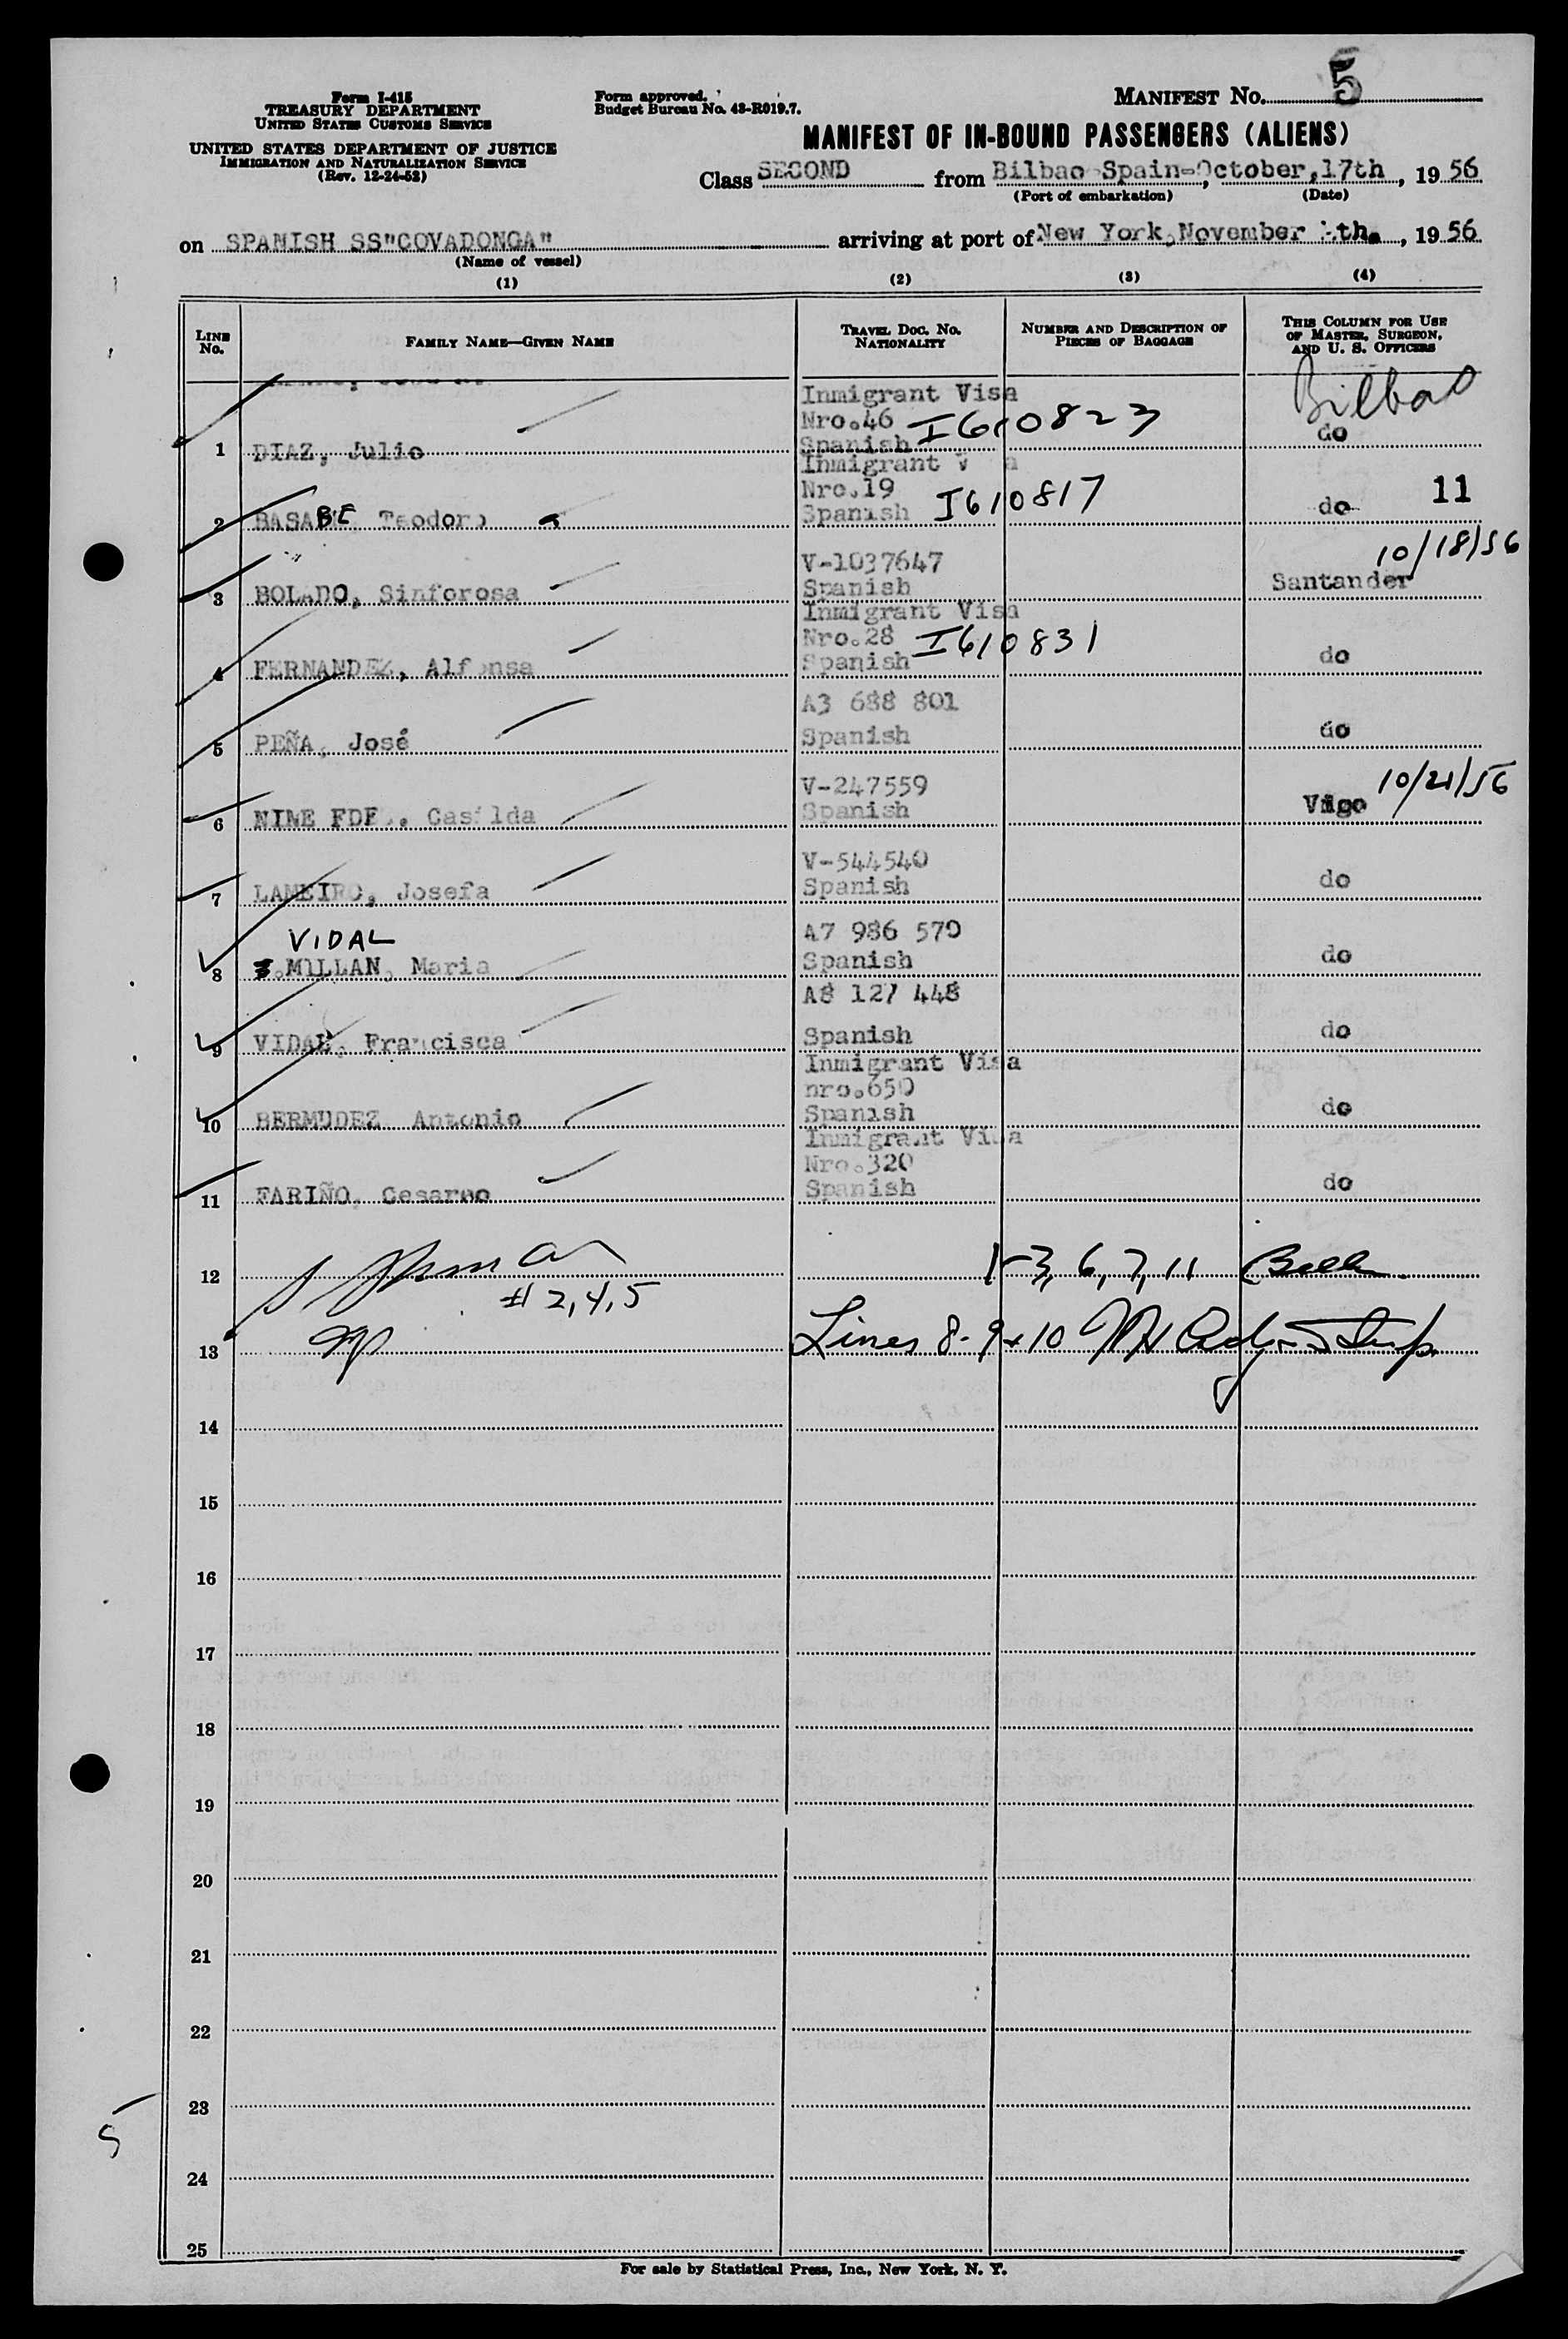 Form I-415
TREASURY DEPARTMENT
UNITED STATES CUSTOMS SERVICE
UNITED STATES DEPARTMENT OF JUSTICE
IMMIGRATION AND NATURALIZATION SERVICE
(Rev. 12-24-52)
Form approved.
Budget Bureau No. 43-R019.7.
MANIFEST No. 5
MANIFEST OF IN-BOUND PASSENGERS (ALIENS)
Class SECOND from Bilbao-Spain-October,17th, 1956
(Port of embarkation) (Date)
on SPANISH SS"COVADONGA" arriving at port of New York, November th., 1956
(Name of vessel)
(1) (2) (3) (4)
LINE No. FAMILY NAME—GIVEN NAME TRAVEL DOC. NO. NATIONALITY NUMBER AND DESCRIPTION OF PIECES OF BAGGAGE THIS COLUMN FOR USE OF MASTER, SURGEON, AND U. S. OFFICERS
Inmigrant Visa Bilbao
Nro.46 I610823
1 DIAZ, Julio Spanish do
Inmigrant
Nro.19 I610817 11
2 BASABE Teodoro Spanish do
V-1037647 10/18/56
3 BOLADO, Sinforosa Spanish Santander
Inmigrant Visa
Nro.28 I610831
4 FERNANDEZ, Alfonsa Spanish do
A3 688 801
5 PEÑA, José Spanish do
V-247559 10/21/56
6 NINE FDE. Casilda Spanish Vigo
V-544540
7 LAMEIRO, Josefa Spanish do
VIDAL A7 986 570
8 MILLAN, Maria Spanish do
A8 127 448
9 VIDAL, Francisca Spanish do
Inmigrant Visa
nro.650
10 BERMUDEZ Antonio Spanish
do
Inmigrant Visa
Nro.320
11 FARIÑO, Cesareo Spanish do
12 1-3, 6, 7, 11
# 2,4,5
13 Lines 8-9+10
14
15
16
17
18
19
20
21
22
23
5
24
25
For sale by Statistical Press, Inc., New York, N. Y.